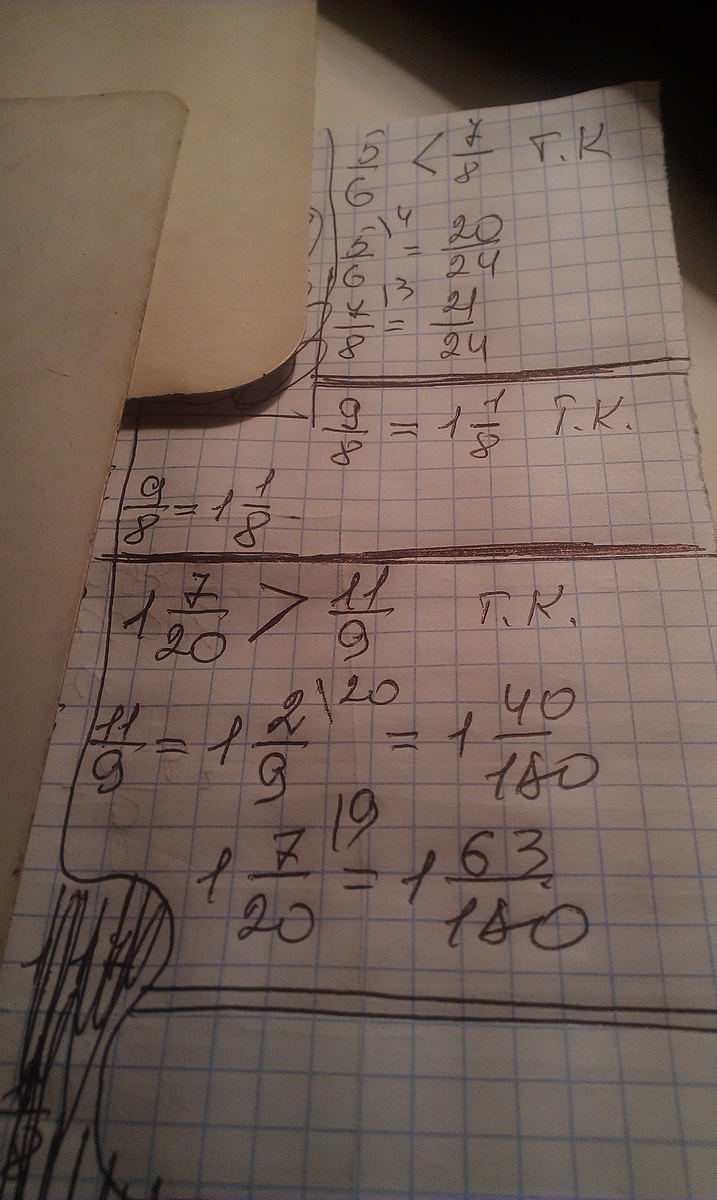 5/6 < 7/8 Т.К
5/6 \4 = 20/24
7/8 \3 = 21/24
9/8 = 1 1/8 Т.К.
9/8 = 1 1/8
1 7/20 > 11/9 Т.К.
11/9 = 1 2/9 \20 = 1 40/180
1 7/20 |9 = 1 63/180